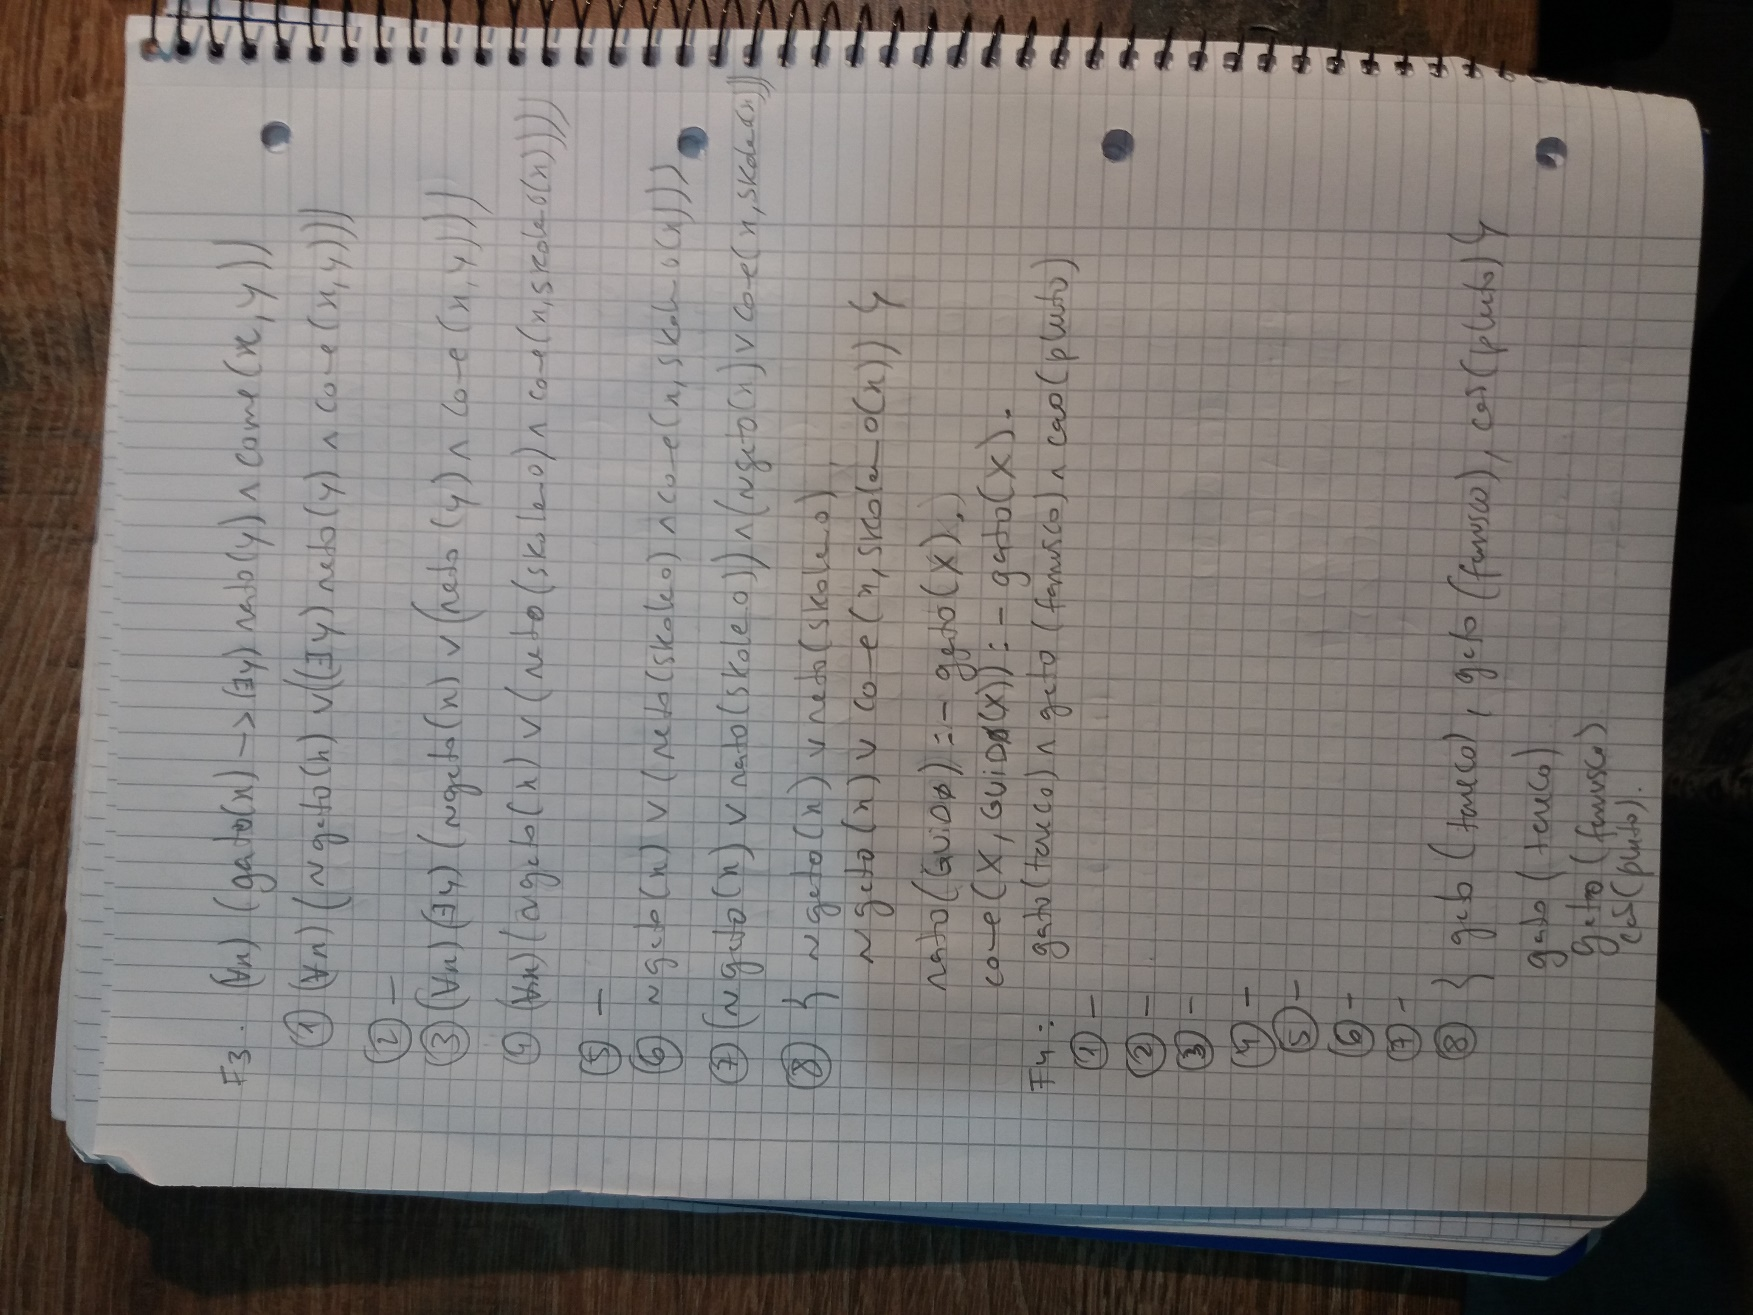 F3. (∀x) (gato(x) -> ∃y) rato(y) ∧ come(x,y))
① (∀x) (~gato(x) ∨ ((∃y) rato(y) ∧ come(x,y)))
② -
③ (∀x) (∃y) (~gato(x) ∨ (rato(y) ∧ come(x,y)))
④ (∀x) (~gato(x) ∨ (rato(skolemo) ∧ come(x,skolemo(x))))
⑤ -
⑥ ~gato(x) ∨ (rato(skolemo) ∧ come(x,skolemo(x)))
⑦ (~gato(x) ∨ rato(skolemo)) ∧ (~gato(x) ∨ come(x,skolemo(x)))
⑧ } ~gato(x) ∨ rato(skolemo)
~gato(x) ∨ come(x,skolemo(x)) }
rato(GUIDO) :- gato(X).
come(X,GUIDO(X)) :- gato(X).
F4: gato(tareco) ∧ gato(farrusco) ∧ cao(pluto)
① -
② -
③ -
④ -
⑤ -
⑥ -
⑦ -
⑧ } gato(tareco), gato(farrusco), cao(pluto) }
gato(tareco)
gato(farrusco)
cao(pluto).